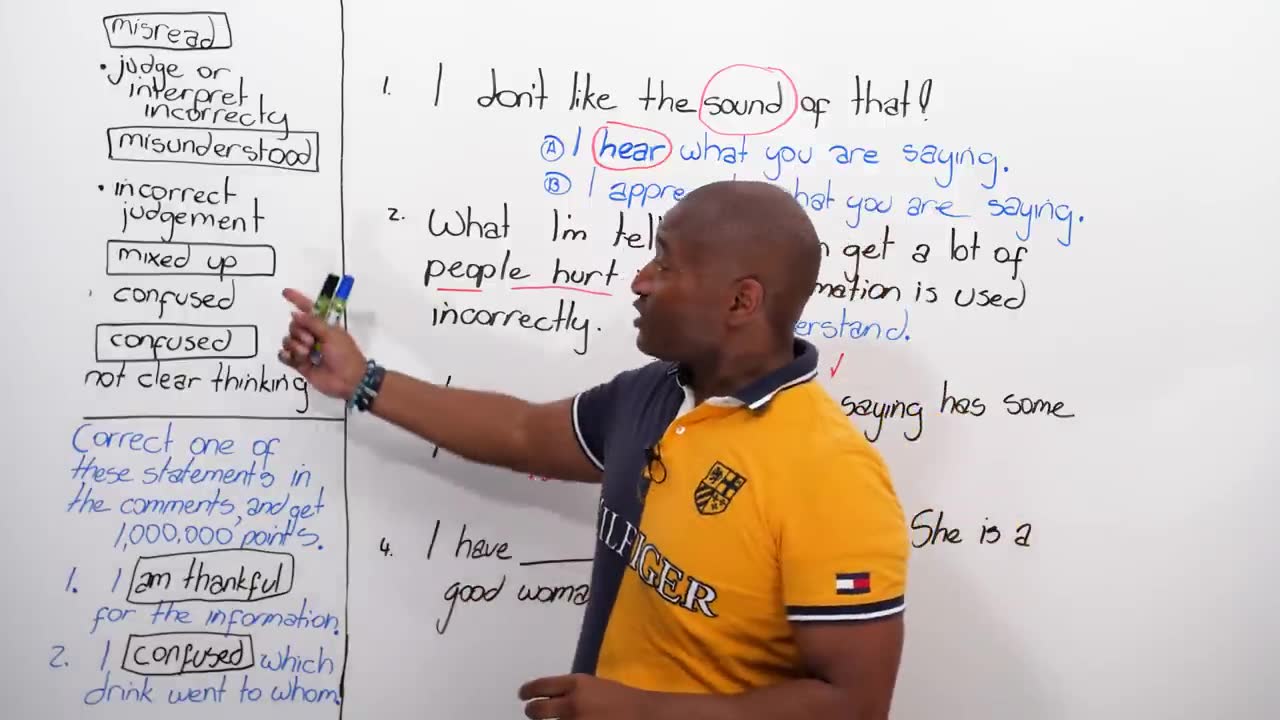 misread
• judge or
interpret
incorrecty
misunderstood
• incorrect
judgement
mixed up
confused
confused
not clear thinking
Correct one of
these statements in
the comments, and get
1,000,000 points.
1. I am thankful
for the information.
2. I confused which
drink went to whom.
1. I don't like the sound of that!
A I hear what you are saying.
B I what you are saying.
2. What I'm get a lot of
people hurt is used
incorrectly.
saying has some
4. I have She is a
good
HILFIGER